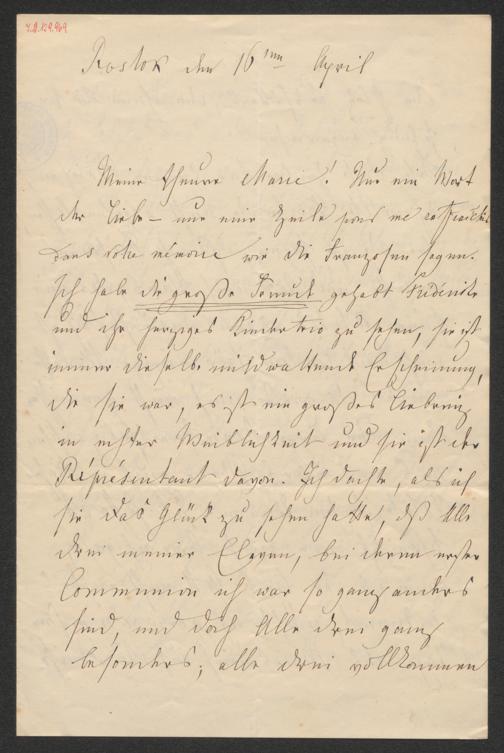 Rostok den 16ten April
Meine theure Marie! Nur ein Wort
der Liebe – nur eine Zeile pour me rafraichir
dans votre mémoire wie die Franzosen sagen.
Ich habe die große Freude gehabt Sidonie
und ihr herziges Kindertrio zu sehen, sie ist
immer dieselbe mildwaltende Erscheinung,
die sie war, es ist ein großer Liebreiz
in echter Weiblichkeit und sie ist der
Réprésentant davon. Ich dachte, als ich
sie das Glück zu sehen hatte, daß Alle
drei meiner Eleven, bei deren erster
Communion ich war so ganz anders
sind, und doch Alle drei ganz
besonders; alle drei vollkommen